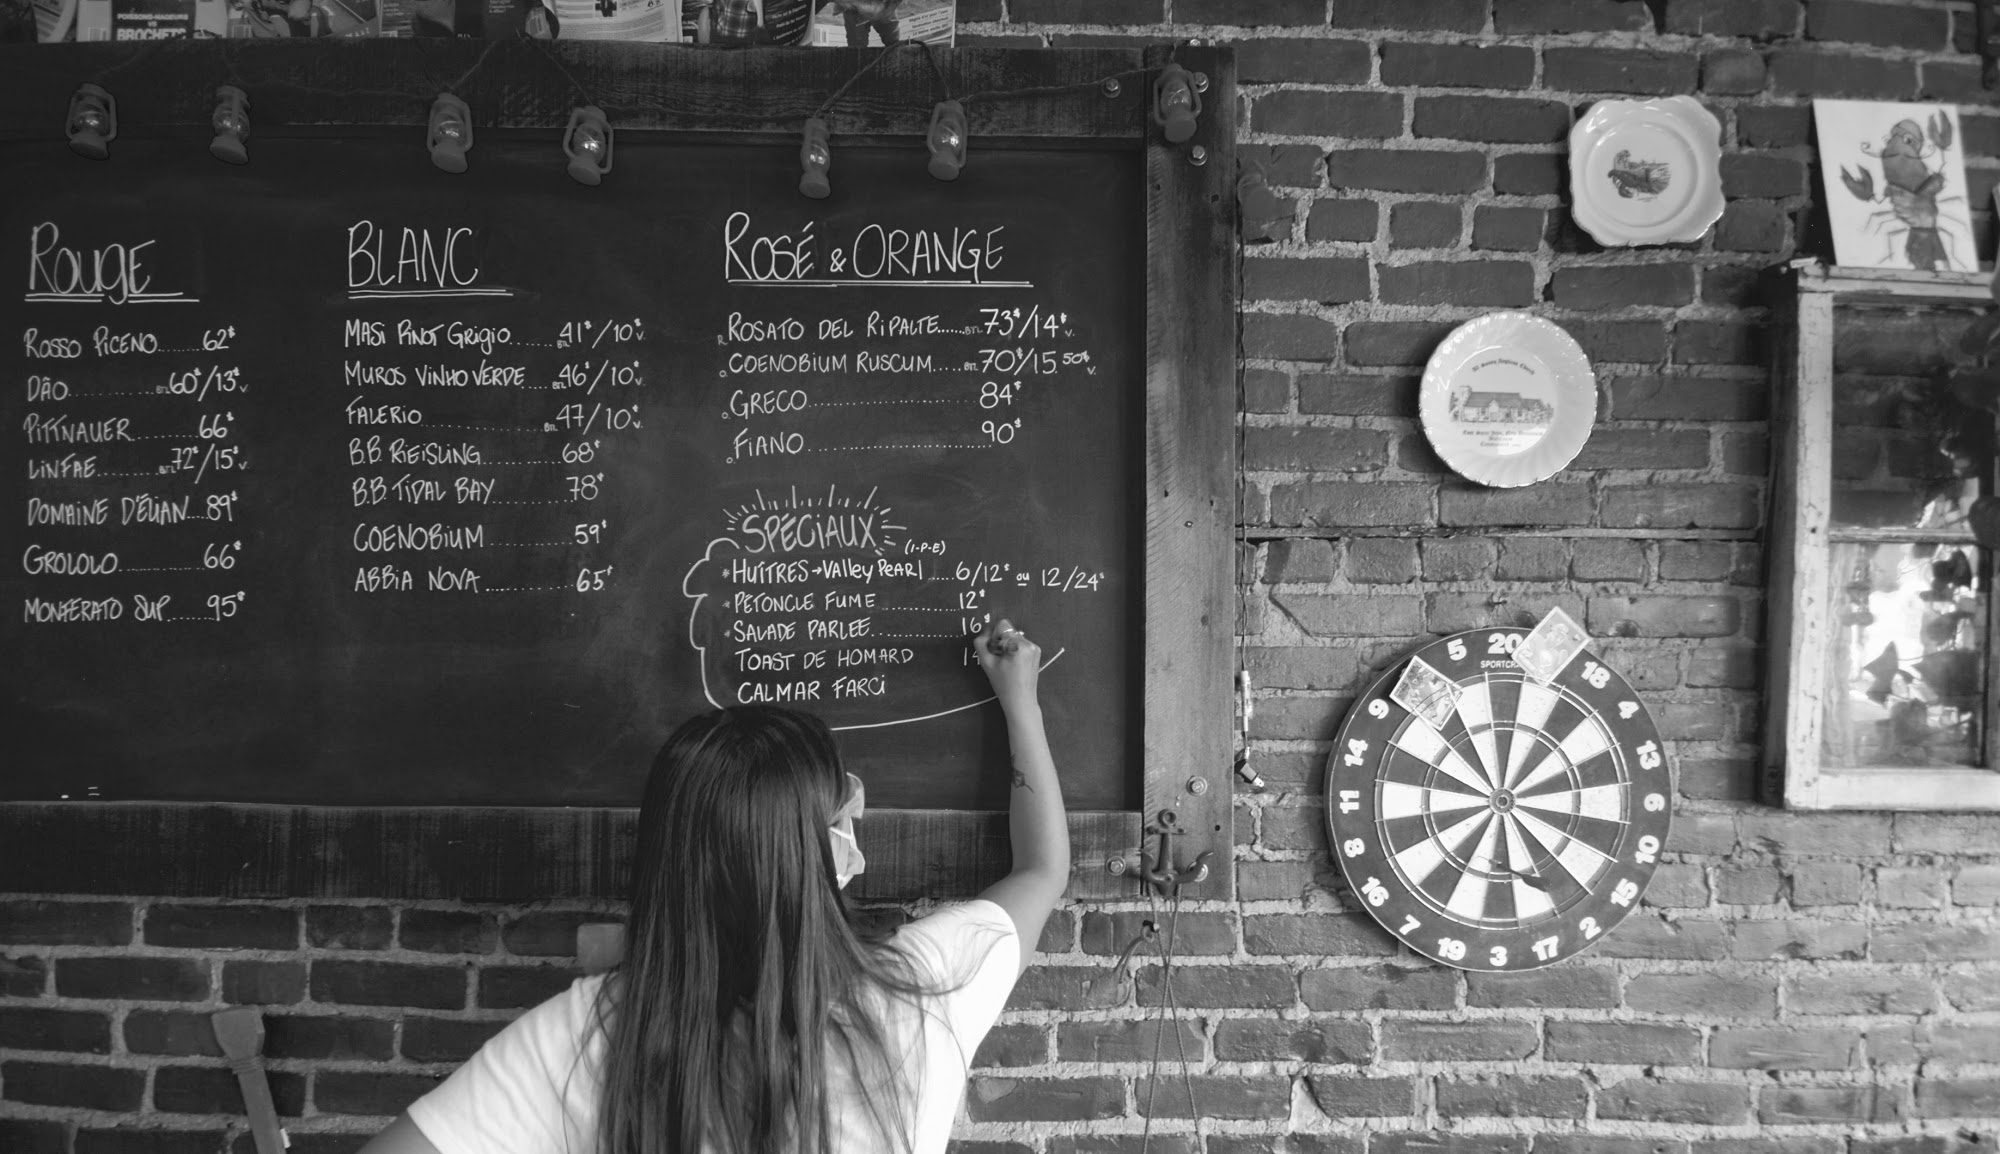 POISSONS-MADEURS
BROCHETS
ROUGE
ROSSO PICENO........62$
DÃO..............BTL 60$/13$ V.
PITTNAUER.........66$
LINFAE..........BTL 72$/15$ V.
DOMAINE D'ÉUIAN....89$
GROLOLO............66$
MONFERATO SUP.......95$
BLANC
MASI PINOT GRIGIO......BTL 41$/10$ V.
MUROS VINHO VERDE....BTL 46$/10$ V.
FALERIO................BTL 47/10$ V.
B.B. RIEISLING............68$
B.B. TIDAL BAY............78$
COENOBIUM............59$
ABBIA NOVA............65$
ROSÉ & ORANGE
R. ROSATO DEL RIPALTE......BTL 73$/14$ V.
O. COENOBIUM RUSCUM.....BTL 70$/15.50$ V.
O. GRECO......................84$
O. FIANO......................90$
SPÉCIAUX
(I-P-E)
* HUÎTRES → VALLEY PEARL.....6/12$ ou 12/24$
* PÉTONCLE FUME............12$
* SALADE PARLEE.............16$
TOAST DE HOMARD 14
CALMAR FARCI
5 20 18 4 13 6 10 15 2 17 3 19 7 16 8 11 14 9